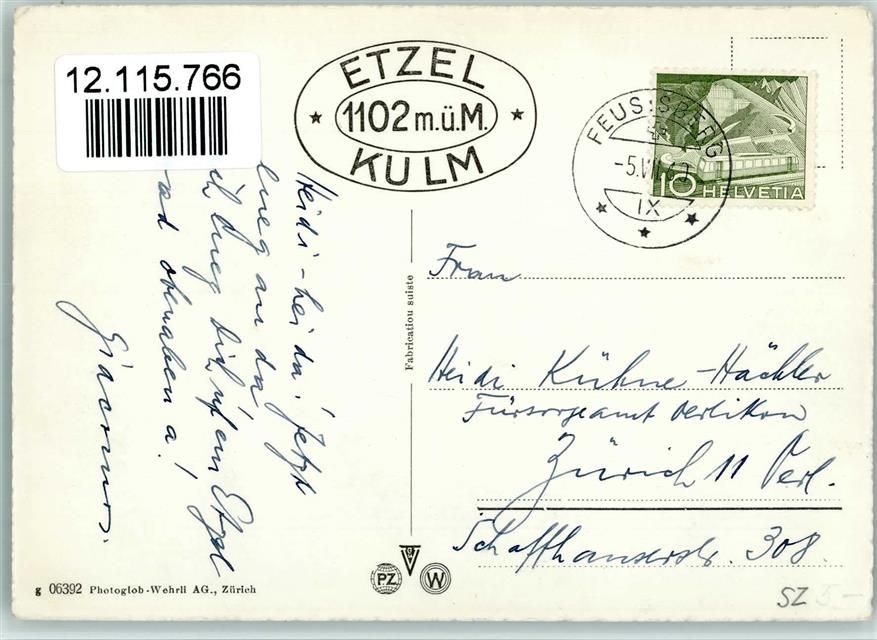 12.115.766
ETZEL
1102 m.ü.M.
KULM
FEUSISBERG
-5.VII
IX
10 HELVETIA
Heidi-heidu! Jetzt
lueg an du
ich lueg dich uf em Etzel
obenaben a!
Giacomo.
Fabrication suisse
Frau
Heidi Kühne-Hächler
Fürsorgeamt Oerlikon
Zürich 11 Oerl.
Schaffhauserstr. 308.
PZ
W
g 06392 Photoglob-Wehrli AG., Zürich
SZ 5.-